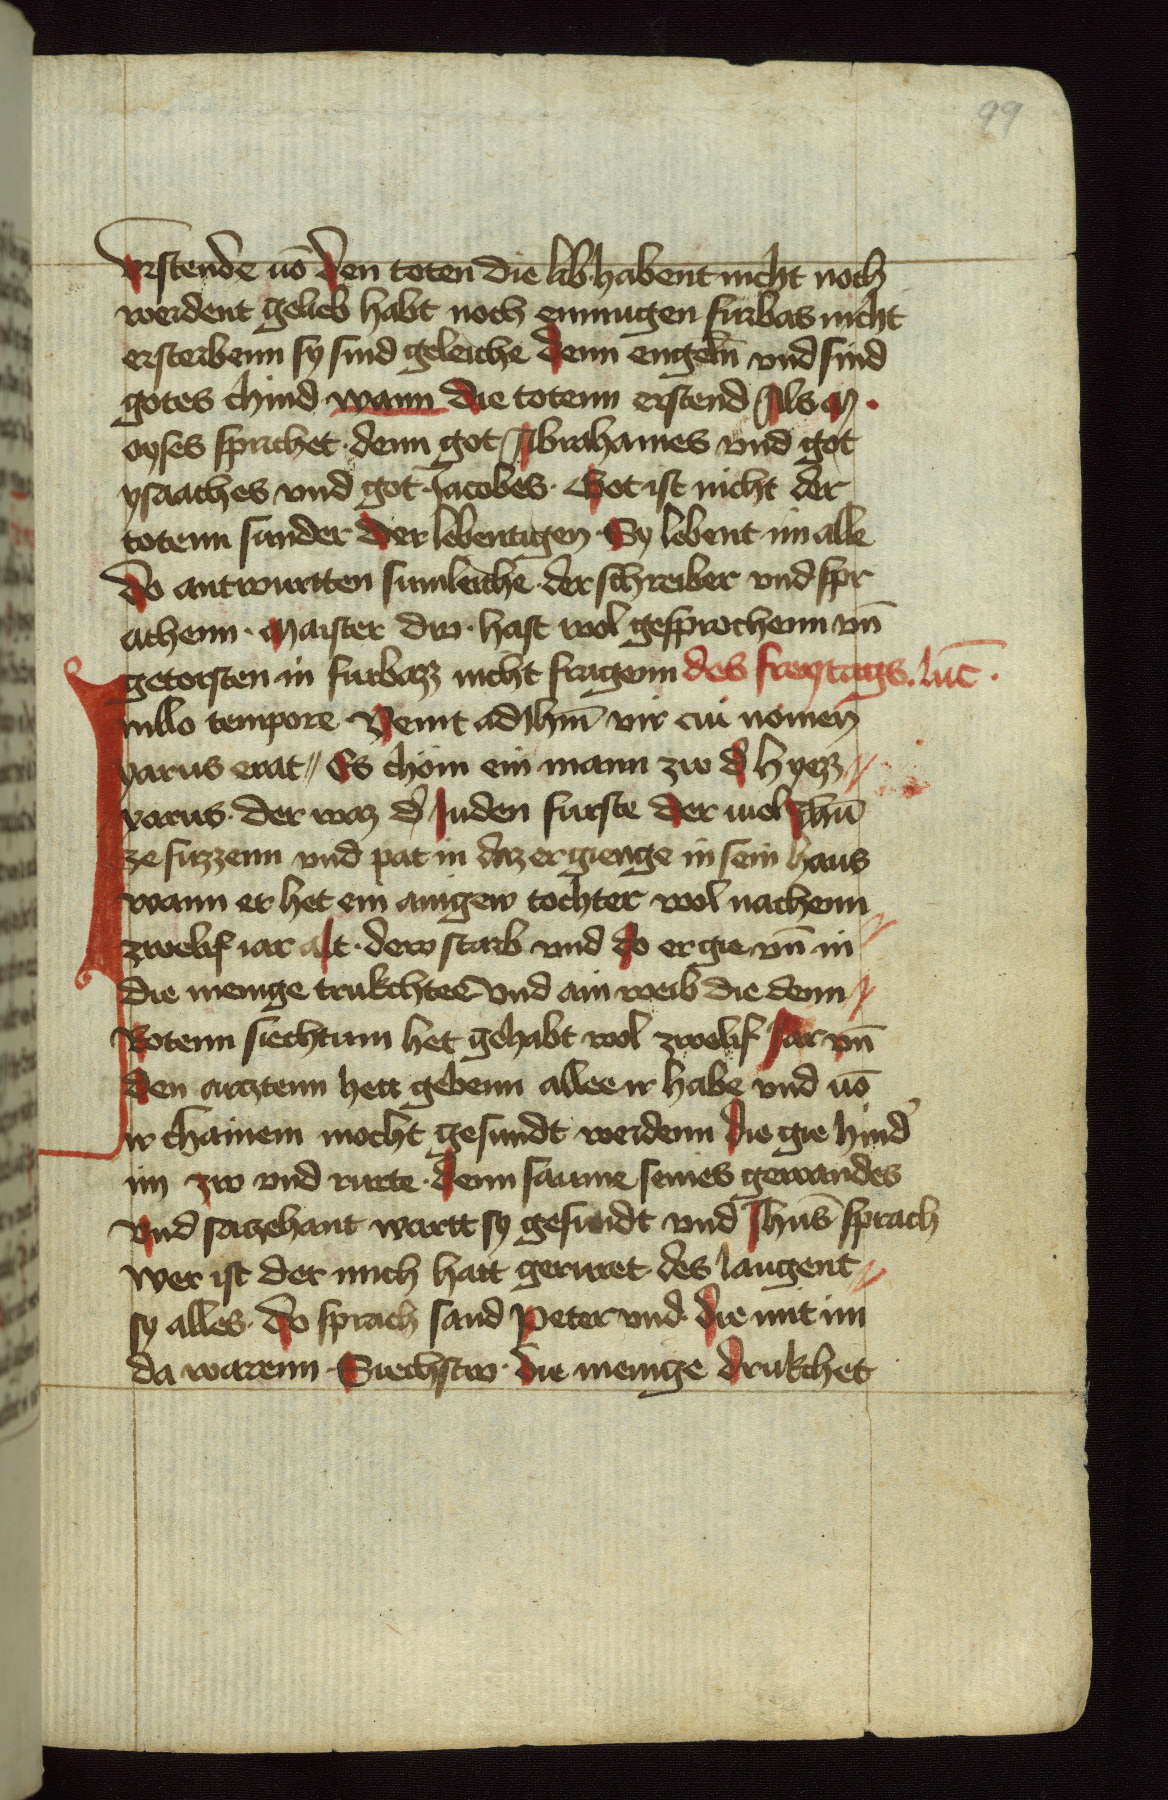 99
urstende uō den toten die lib habent nicht noch
werdent gelieb habt noch enmugen furbas nicht
ersterbenn sy sind geleiche denn engeln̄ vnd sind
gotes chind wann die totenn erstend Als M
oyses sprichet · denn got Abrahames vnd got
ysaaches vnd got Jacobes · Got ist nicht der
totenn sunder der lebentigen · Sy lebent im alle
do antwurtten sumleiche · der schreiber vnd spr
achenn · Maister dw · hast wol gesprochenn vn̄
getorsten in furbazz nicht fragenn des freytags · luc̄ ·
In illo tempore · Venit ad Jhm̄ vir cui nomen
yarus erat // Es chom ein mann zw d̓ hyezz //
yarus · der waz d̓ Juden furste der uiel Jhū
ze fuzzenn vnd pat in daz er gienge in sein haus
wann er het ein ainigew tochter wol nachenn
zwelif iar alt · dew starb vnd do er gie vn̄ in
die menige trukchtee vnd ain weib die denn //
Rotenn siechtum het gehabt wol zwelif Jar vn̄
den arcztenn hett gebenn allee ir habe vnd uō
ir chainem mocht gesundt werdenn die gie hind̓
im zw vnd rurte · denn saume seines gewandes
Vnd sazehant wartt sy gesundt vnd Jhus̄ sprach
wer ist der mich hatt geruret · des laugent //
sy alles · do sprach sand Peter vnd die mit im
da warenn · Siechstw · die menige drukchet